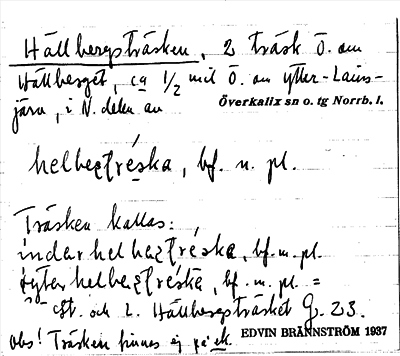 Hällbergsträsken, 2 träsk Ö. om
Hällberget, ca 1/2 mil Ö. om Ytter-Lains-
järv, i N. delen av
Överkalix sn o. tg Norrb. l.
bf. n. pl.
Träsken kallas:
bf. n. pl.
bf. n. pl. =
St. och L. Hällbergsträsket G. 23.
Obs! Träsken finnes ej på ek.
EDVIN BRÄNNSTRÖM 1937